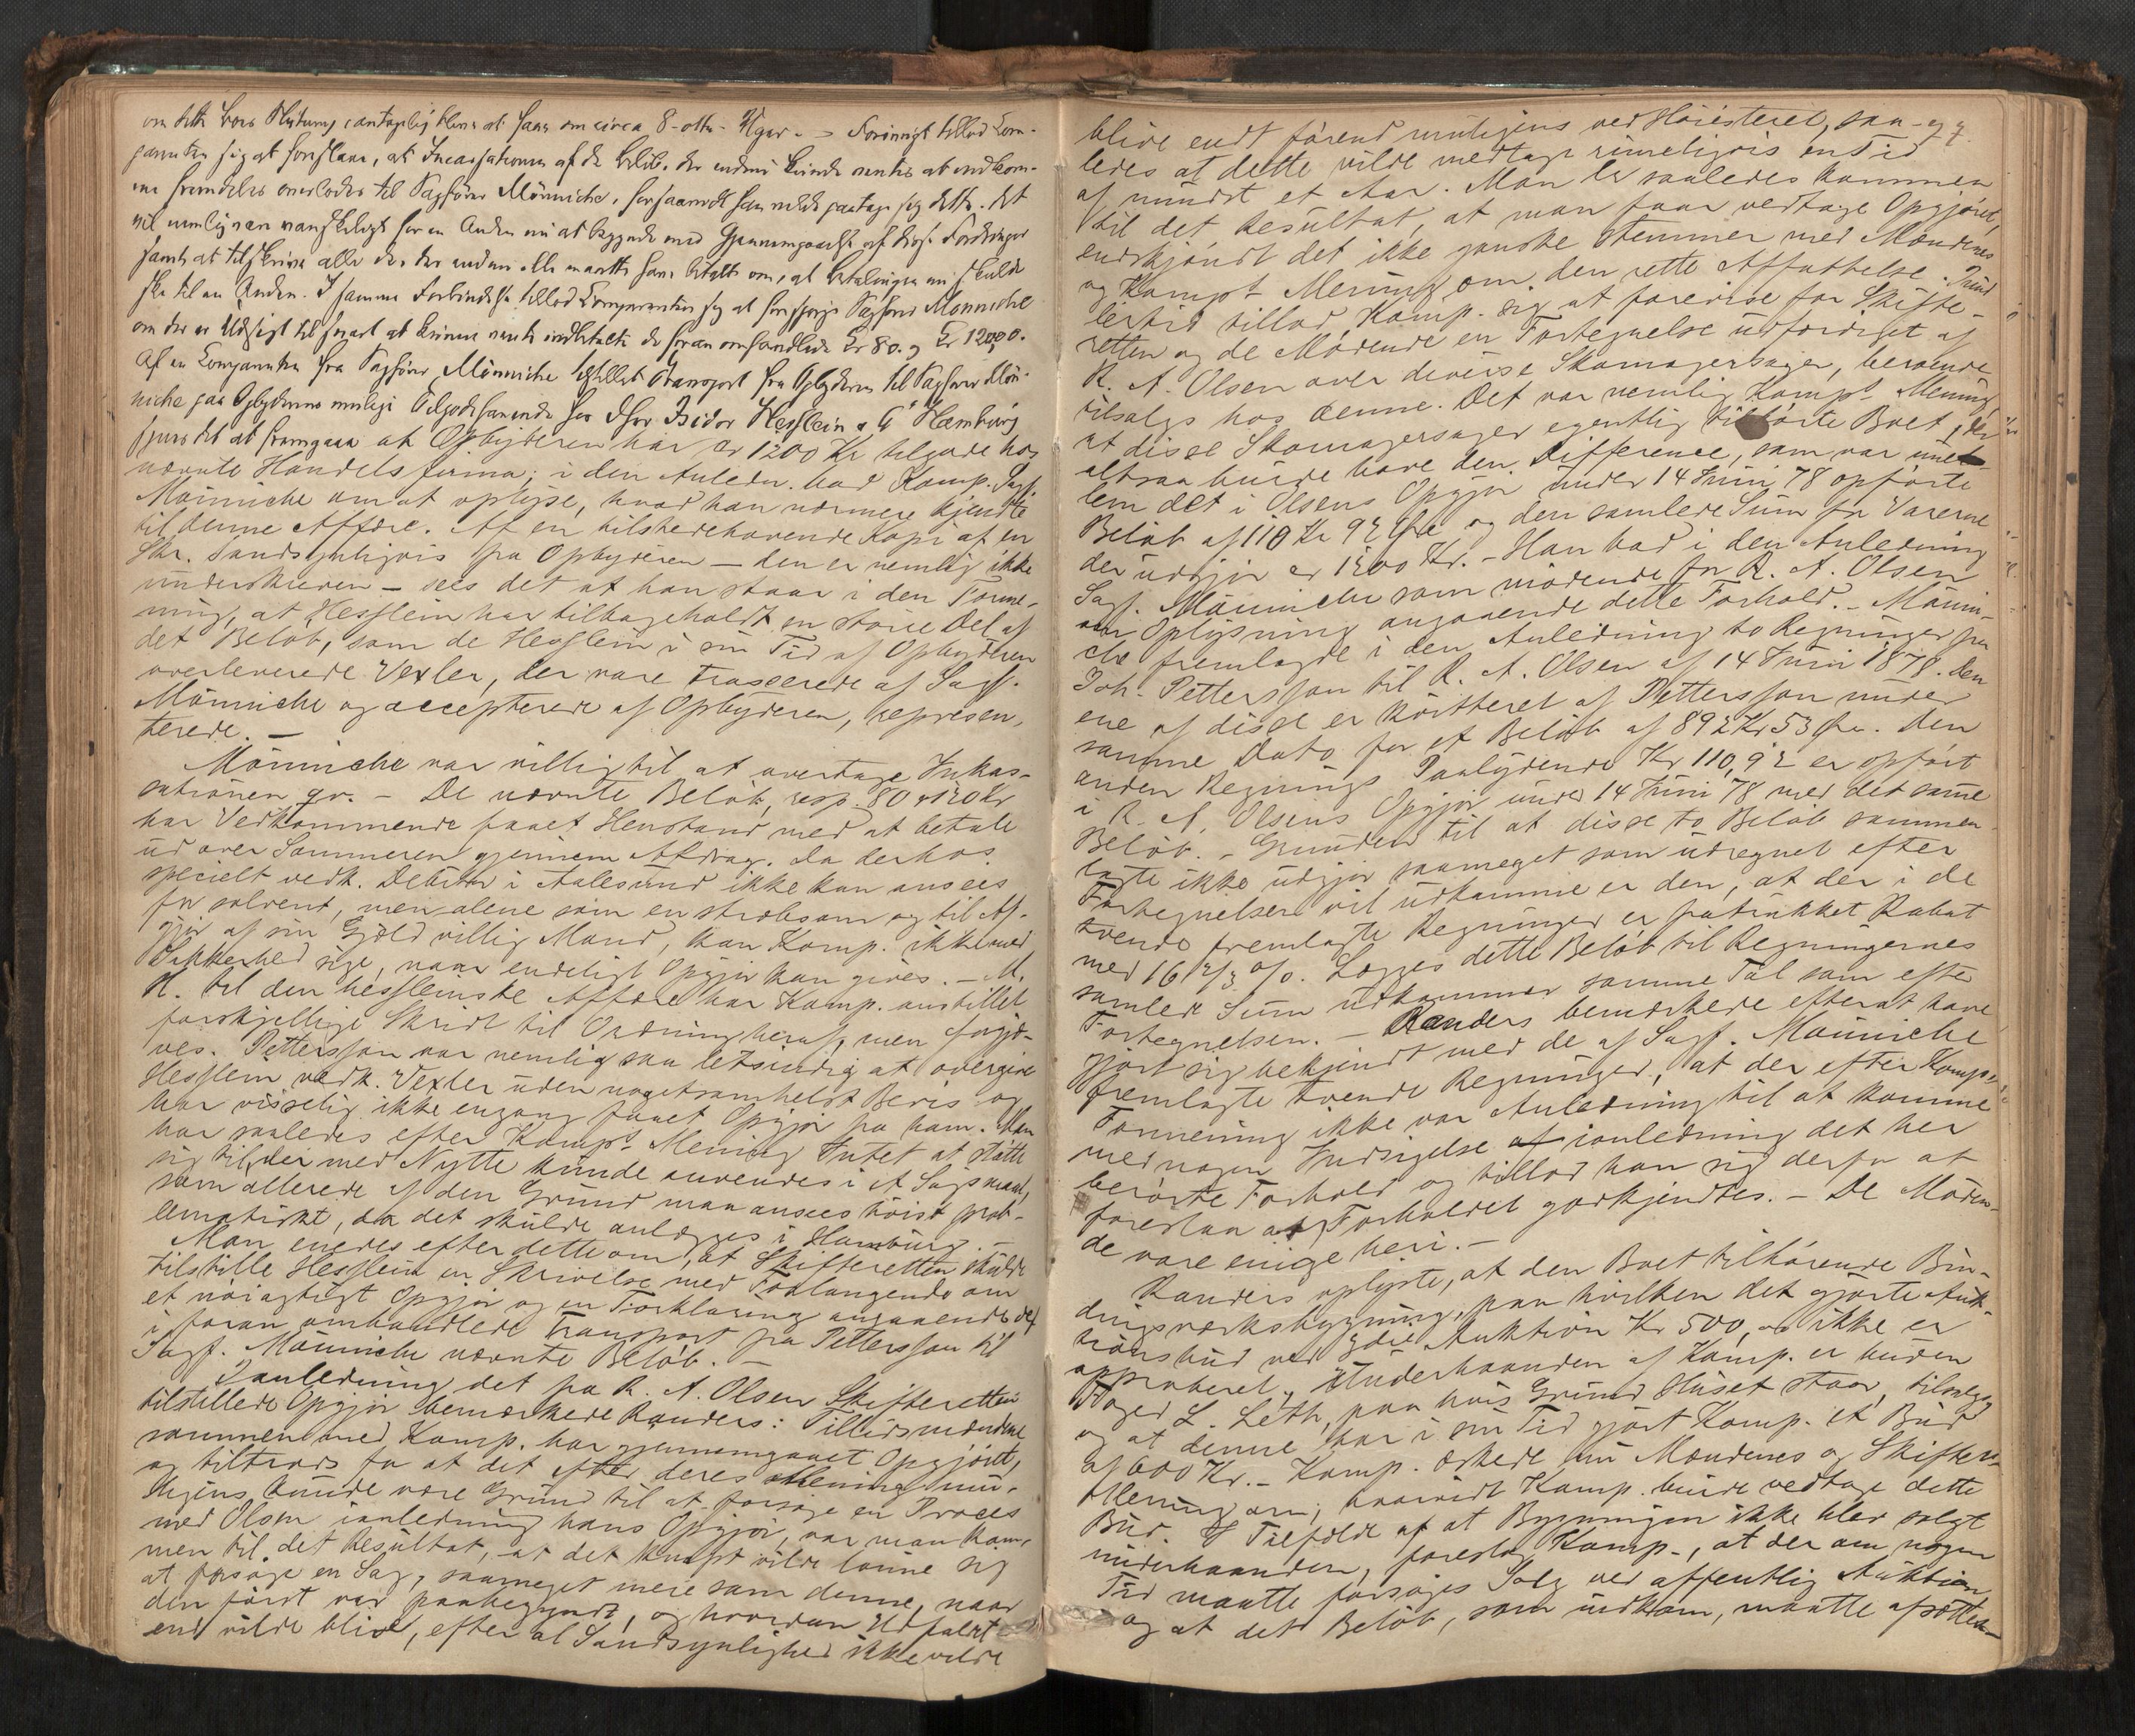 om dette Boes Slutning antagelig bliver at haves om circa 8-otte- Uger. - Forövrigt tillod Com-
parenten sig at foreslaae, at Incassationen af de Beløb, der endnu kunde ventes at indkom-
me fremdeles overlodes til Sagfører Mönniche, forsaavidt han vilde paatage sig dette. Det
vil nemlig være vanskeligt for en Anden nu at begynde med Gjennemgaaelse af disse Fordringer
samt at tilskrive alle de, der endnu alle maatte have betalt om, at Betalingen nu skulde
ske til en Anden. I samme Forbindelse tillod Comparenten sig at forespørge Sagfører Mönniche
om der er Udsigt til snart at kunne vente indbetalt de foran omhandlede Kr 80. og Kr 120,00.
Af en Comparenten fra Sagfører Mönniche tilstillet Transport fra Opbyderen til Sagfører Mön-
niche paa Opbyderens mulige Tilgodehavende hos Dhrr Isidor Hesslein & Co Hamburg
synes det at fremgaa at Opbyderen har ca 1200 Kr tilgode hos
nævnte Handelsfirma; i den Anledn. bad Komp. Sagf.
Mönniche om at oplyse, hvad han nærmere kjendte
til denne Affære. Af en tilstedehavende Kopi af en
Skr. sandsynligvis fra Opbyderen — den er nemlig ikke
underskreven — sees det at han staar i den Forme-
ning, at Hesslein har tilbageholdt en större Del af
det Belöb, som de Hesslein i sin Tid af Opbyderen
overleverede Vexler, der vare trasserede af Sagf.
Mönniche og accepterede af Opbyderen, represen-
terede. —
Mönniche var villig til at overtage Inkas-
sationen qv. — De nævnte Belöb, resp. 80 & 120 Kr
har Vedkommende faaet Henstand med at betale
ud over Sommeren gjennem Afdrag. Da derhos
specielt vedk. Debitor i Aalesund ikke kan ansees
for solvent, men alene som en stræbsom og til Af-
gjör af sin Gjeld villig Mand, kan Komp. ikke med
Sikkerhed sige, naar endeligt Opgjör kan gives. — M.
H. til den hessleinske Affære har Komp. anstillet
forskjellige Skridt til Ordning heraf, men forgjæ-
ves. Pettersson var nemlig saa letsindig at overgive
Hesslein vedk. Vexler uden nogetsomhelst Bevis og
har visselig ikke engang faaet Opgjör fra ham. Man
har saaledes efter Komps Mening Intet at stötte
sig til, der med Nytte kunde anvendes i et Sögsmaal,
som allerede af den Grund maa ansees höist prob-
lematiskt, da det skulde anlægges i Hamburg. —
Man enedes efter dette om, at Skifteretten skulde
tilstille Hesslein en Skrivelse med Forlangende om
et nöiagtigt Opgjör og en Forklaring angaaende det
i foran omhandlede Transport fra Pettersson til
Sagf. Mönniche nævnte Belöb. —
I anledning det fra R. A. Olsen Skifteretten
tilstillede Opgjör bemærkede Randers: Tillidsmændene
sammen med Komp. har gjennemgaaet Opgjöret,
og tiltrods for at det efter deres Mening mu-
ligens kunde være Grund til at forsöge en Proces
med Olsen ianledning hans Opgjör, var man kom-
men til det Resultat, at det knapt vilde lönne sig
at forsöge en Sag, saameget mere som denne, naar
den först var paabegyndt, og hvordan Udfaldet
end vilde blive, efter al Sandsynlighed ikke vilde
97.
blive endt förend muligens ved Höiesteret, saa-
ledes at dette vilde medtage rimeligvis en Tid
af mindst et Aar. Man er saaledes kommen
til det Resultat, at man faar vedtage Opgjöret,
endskjöndt det ikke ganske stemmer med Mændenes
og Komps Mening om den rette Affattelse. Imid
lertid tillod Komp. sig at forevise for Skifte-
retten og de Mödende en Fortegnelse udfærdiget af
R. A. Olsen over diverse Skomagersager, beroende
tilsalgs hos denne. Det var nemlig Komps Mening,
at disse Skomagersager egentlig tilhörte Boet, der
altsaa burde have den Difference, som var mel-
lem det i Olsens Opgjör under 14 Juni 78 opförte
Belöb af 110 Kr 92 Öre og den samlede Sum for Varerne
der udgjör ca 1200 Kr. — Han bad i den Anledning
Sagf. Mönniche som mödende for R. A. Olsen
om Oplysning angaaende dette Forhold. — Mönni-
che fremlagde i den Anledning to Regninger fra
Joh. Pettersson til R. A. Olsen af 14 Juni 1878. Den
ene af disse er kvitteret af Pettersson under
samme Dato for et Belöb af 892 Kr 53 Öre. Den
anden Regnings Paalydende Kr 110,92 er opfört
i R. A. Olsens Opgjör under 14 Juni 78 med det samme
Belöb. — Grunden til at disse to Belöb sammen-
lagte ikke udgjör saameget som udregnet efter
Fortegnelsen vil udkomme er den, at der i de
tvende fremlagte Regninger er fratrukket Rabat
med 16 2/3 %. Lægges dette Belöb til Regningernes
samlede Sum udkommer samme Tal som efter
Fortegnelsen. — Randers bemærkede efterat have
gjort sig bekjendt med de af Sagf. Mönniche
fremlagte tvende Regninger, at der efter Komps
Formening ikke var Anledning til at komme
med nogen Indsigelse af ianledning det her
berörte Forhold og tillod han sig derfor at
foreslaa at Forholdet godkjendtes. — De Möden-
de vare enige heri. —
Randers oplyste, at den Boet tilhörende Bin-
dingsværksbygning, paa hvilken det gjorte Auk-
tionsbud ved 3die Auktion Kr 500, — ikke er
approberet, underhaanden af Komp. er buden
Foged L. Leth, paa hvis Grund Huset staar, tilsalgs
og at denne har i sin Tid gjort Komp. et Bud
af 600 Kr. — Komp. æskede nu Mændenes og Skifter.
Mening om, hvorvidt Komp. burde vedtage dette
Bud. I Tilfælde af at Bygningen ikke blev solgt
underhaanden, foreslog Komp., at der om nogen
Tid maatte forsöges Salg ved offentlig Auktion
og at det Belöb, som indkom, maatte afsættes